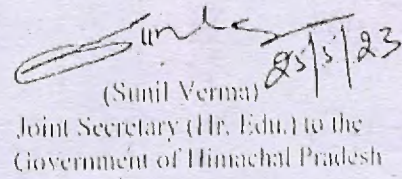 Sunil
25/5/23
(Sunil Verma)
Joint Secretary (Hr. Edu.) to the
Government of Himachal Pradesh